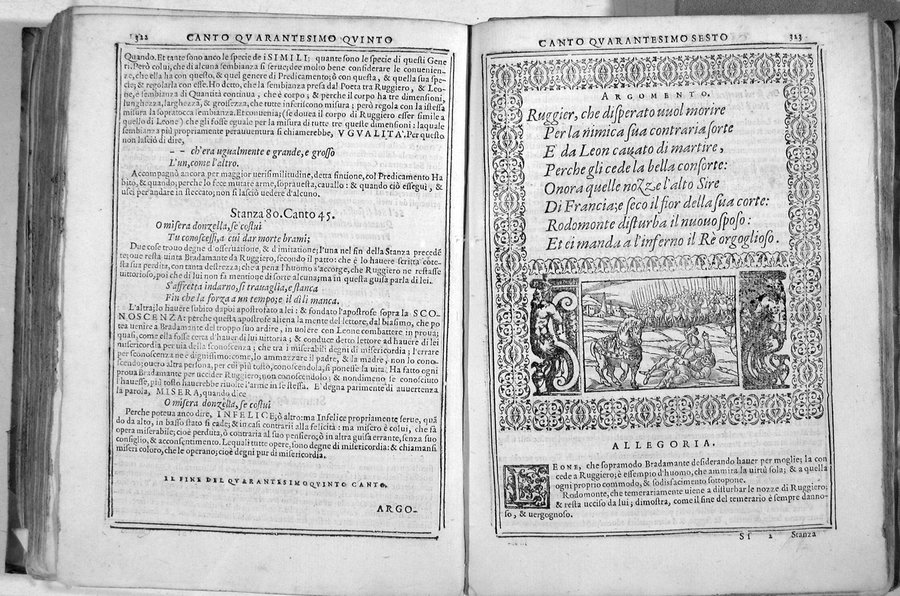 322
CANTO QVARANTESIMO QVINTO
Quando. Et tante sono anco le specie de i SIMILI; quante sono le specie di questi Gene
ri. Però colui, che di alcuna sembianza si serue; dee molto bene considerare le conuenien-
ze, che ella ha con questo, & quel genere di Predicamento; ò con questa, & quella sua spe-
cie; & regolarla con esse. Ho detto, che la sembianza presa dal Poeta tra Ruggiero, & Leo-
ne, e sembianza di Quantità continua, che è corpo; & perche il corpo ha tre dimensioni,
lunghezza, larghezza, & grossezza, che tutte inferiscono misura; però regola con la istessa
misura la sopratocca sembianza. Et conuenia; (se douea il corpo di Ruggiero esser simile a
quello di Leone) che gli fosse eguale per la misura di tutte tre queste dimensioni: la quale
sembianza piu propriamente perauuentura si chiamerebbe, VGVALITA'. Per questo
non lasciò di dire,
-- ch'era ugualmente e grande, e grosso
L'un, come l'altro.
Accompagnò ancora per maggior uerisimilitudine, detta fintione, col Predicamento Ha
bito, & quando; perche lo fece mutare arme, soprauesta, cauallo: & quando ciò eseguì, &
uscì per andare in steccato; non si lasciò uedere d'alcuno.
Stanza 80. Canto 45.
O misera donzella, se costui
Tu conoscessi, a cui dar morte brami;
Due cose trouo degne d'osseruatione, & d'imitatione; l'una nel fin della Stanza precedē
te; oue resta uinta Bradamante da Ruggiero, secondo il patto: che è l'hauere scritta cote-
sta sua perdita, con tanta destrezza; che a pena l'huomo s'accorge, che Ruggiero ne restasse
uittorioso, poi che di lui non fa mentione di sorte alcuna; ma in questa guisa parla di lei.
S'affretta indarno, si trauaglia, e stanca
Fin che la forza a un tempo; e il dì li manca.
L'altra; lo hauere subito dapoi apostrofato a lei: & fondato l'apostrofe sopra la SCO-
NOSCENZA: perche questa apostrofe aliena la mente del lettore, dal biasimo, che po
tea uenire a Bradamante del troppo suo ardire, in uolere con Leone combattere in proua;
quasi, come ella fosse certa d'hauer di lui uittoria; & conduce detto lettore ad hauere di lei
misericordia per uia della sconoscenza; che tra i miserabili degni di misericordia; l'errare
per sconoscenza e dignissimo: come, lo ammazzare il padre, & la madre, non lo cono-
scendo; ouero altra persona, per cui più tosto, conoscendola, si ponesse la uita. Ha fatto ogni
proua Bradamante per uccider Ruggiero; non conoscendolo; & nondimeno se conosciuto
l'hauesse, più tosto hauerebbe riuolte l'arme in se stessa. E' degna parimente di auuertenza
la parola, MISERA, quando dice
O misera donzella, se costui
Perche poteua anco dire, INFELICE; ò altro: ma Infelice propriamente serue, quā
do da alto, in basso stato si cade; & in casi contrarii alla felicità: ma misero è colui, che fà
opera miserabile; cioè perduta, ò contraria al suo pensiero; ò in altra guisa errante, senza suo
consiglio, & acconsentimento. Le quali tutte opere, sono degne di misericordia: & chiamansi
miseri coloro, che le operano; cioè degni pur di misericordia.
IL FINE DEL QVARANTESIMO QVINTO CANTO.
ARGO-
CANTO QVARANTESIMO SESTO
323
ARGOMENTO.
Ruggier, che disperato vuol morire
Per la nimica sua contraria sorte
E' da Leon cauato di martire,
Perche gli cede la bella consorte:
Onora quelle nozze l'alto Sire
Di Francia; e seco il fior della sua corte:
Rodomonte disturba il nuouo sposo:
Et ei manda a l'inferno il Rè orgoglioso.
ALLEGORIA.
LEONE, che sopramodo Bradamante desiderando hauer per moglie; la con
cede a Ruggiero; è essempio d'huomo, che ammira la uirtù sola; & a quella
ogni proprio commodo, & sodisfacimento sottopone.
Rodomonte, che temerariamente uiene a disturbar le nozze di Ruggiero;
& resta ucciso da lui; dimostra, come il fine del temerario è sempre danno-
so, & uergognoso.
Sſ 2 Stanza